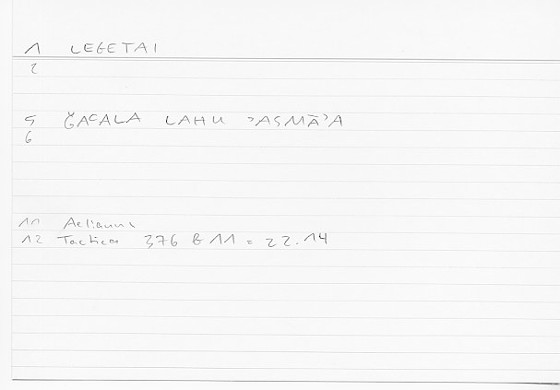 1 LEGETAI
2
5 ǦAʿALA LAHU ʾASMĀʾA
6
11 Aelianus
12 Tactica 376 B 11 = 22.14